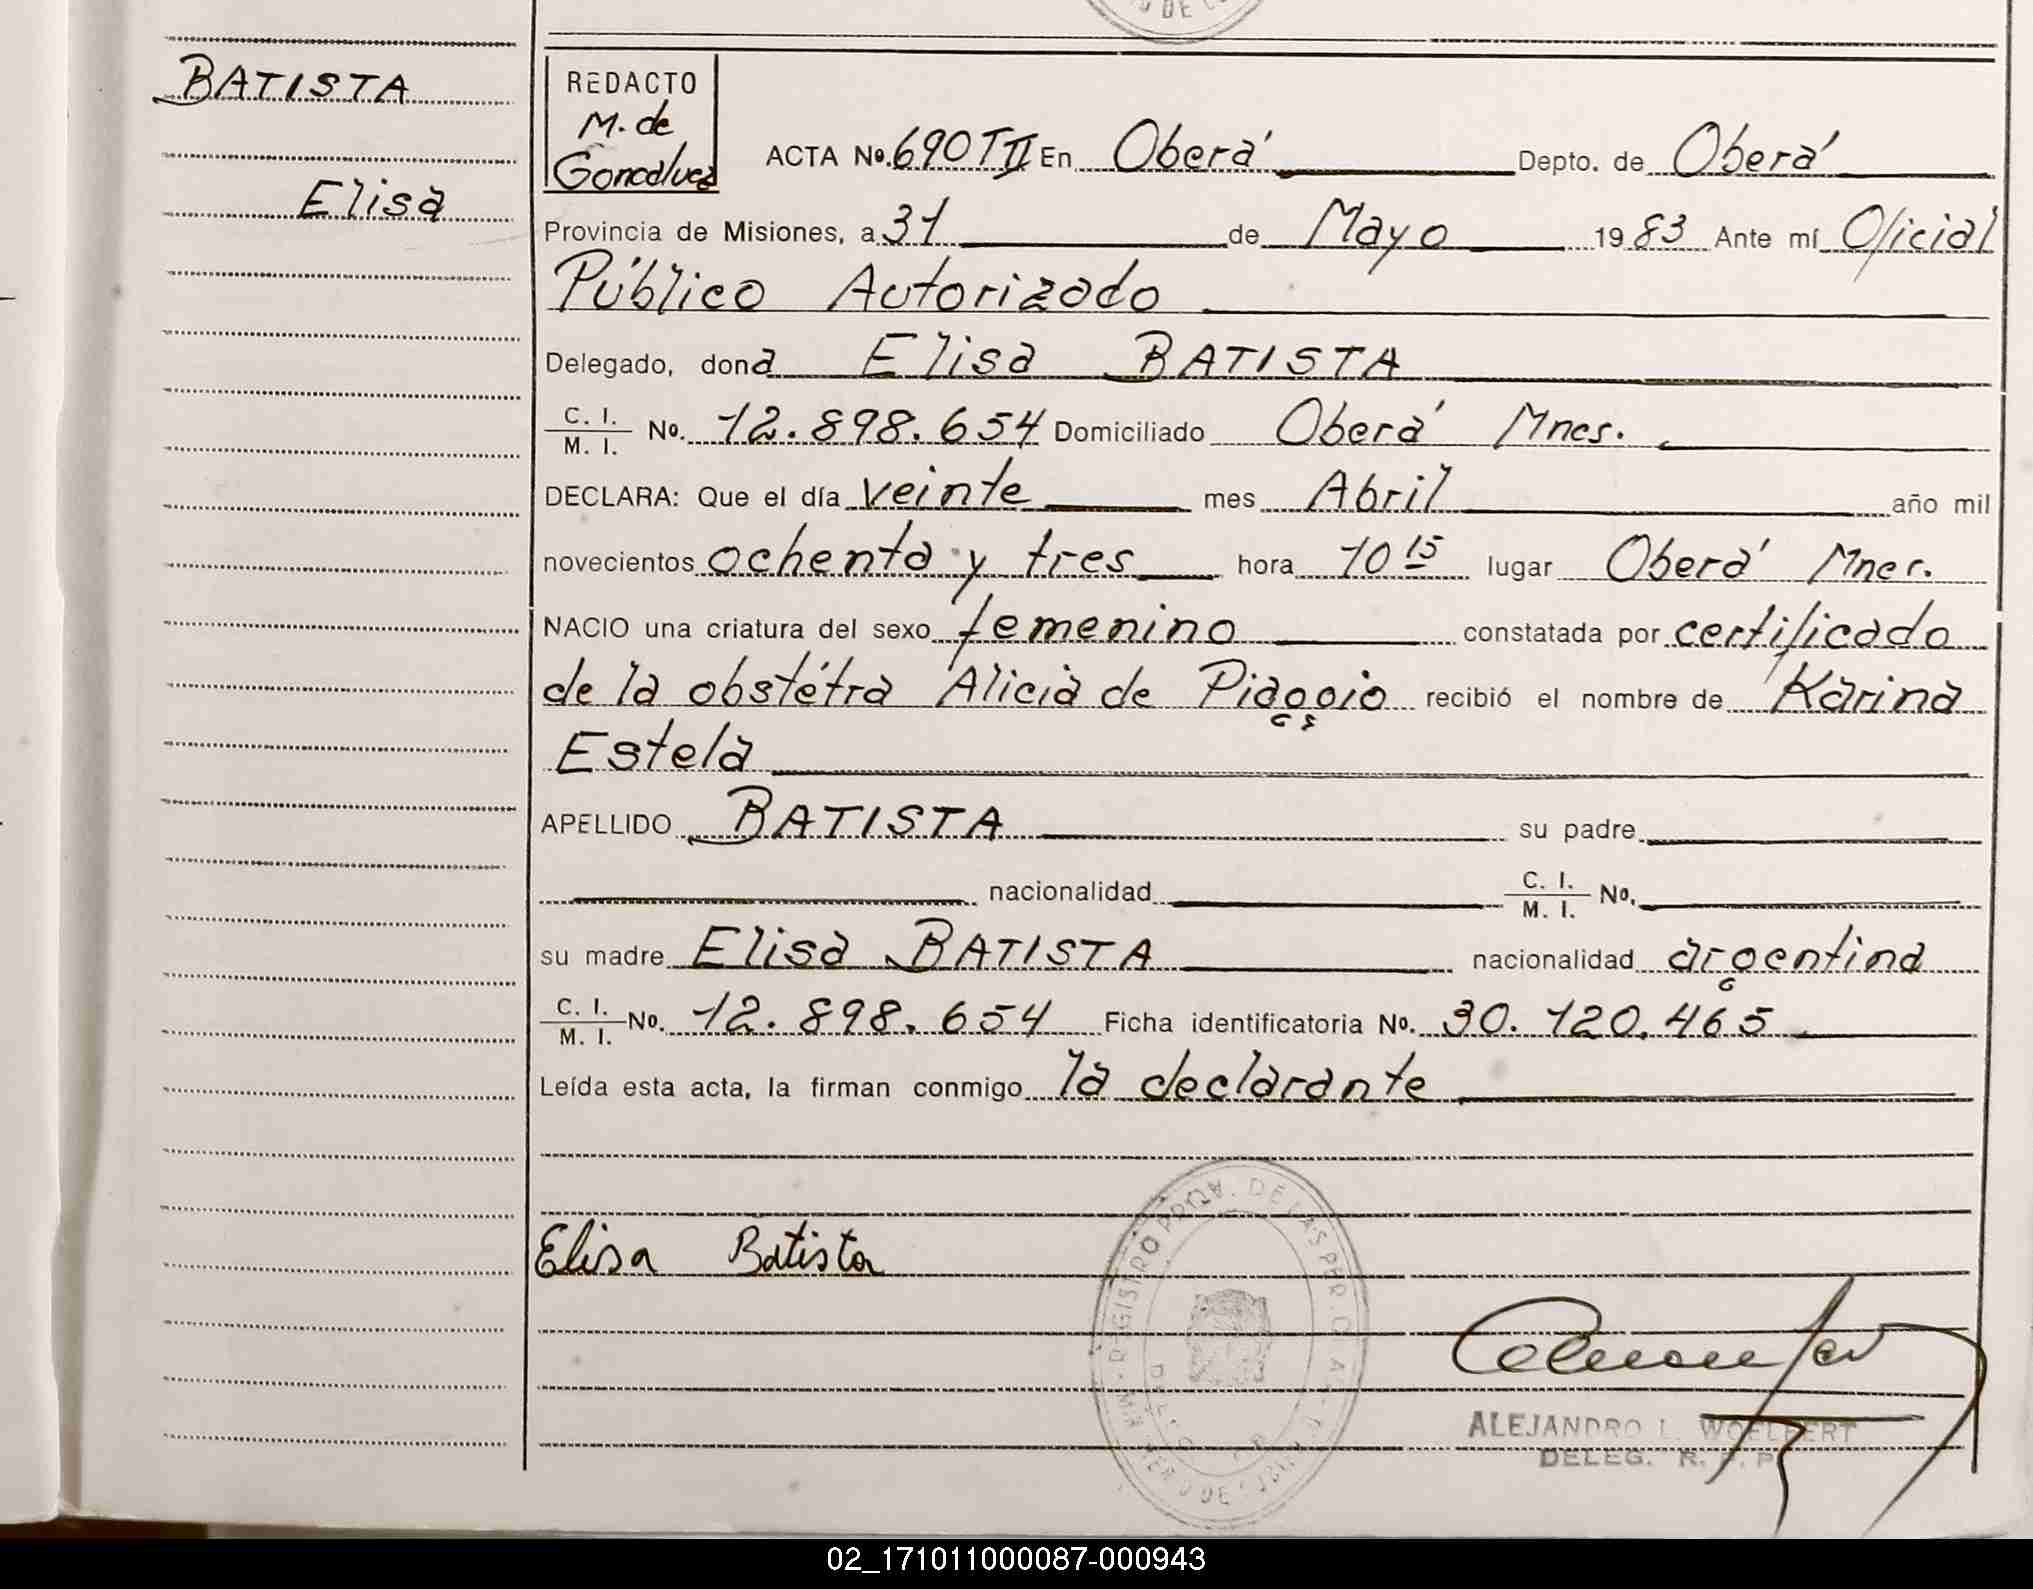 BATISTA
Elisa
REDACTO
M. de
Goncalvez
ACTA No. 690 T II En Oberá Depto. de Oberá
Provincia de Misiones, a 31 de Mayo 1983 Ante mí Oficial
Público Autorizado
Delegado, dona Elisa BATISTA
C. I.
M. I. No. 12.898.654 Domiciliado Oberá Mnes.
DECLARA: Que el día veinte mes Abril año mil
novecientos ochenta y tres hora 10 15 lugar Oberá Mnes.
NACIO una criatura del sexo femenino constatada por certificado
de la obstétra Alicia de Piaggio recibió el nombre de Karina
Estela
APELLIDO BATISTA su padre
nacionalidad C. I.
M. I. No.
su madre Elisa BATISTA nacionalidad argentina
C. I.
M. I. No. 12.898.654 Ficha identificatoria No. 30.120.465
Leída esta acta, la firman conmigo la declarante
Elisa Batista
REGISTRO PROV. DE LAS PER
ALEJANDRO L. WOELFERT
DELEG. R. P. P.
02_171011000087-000943